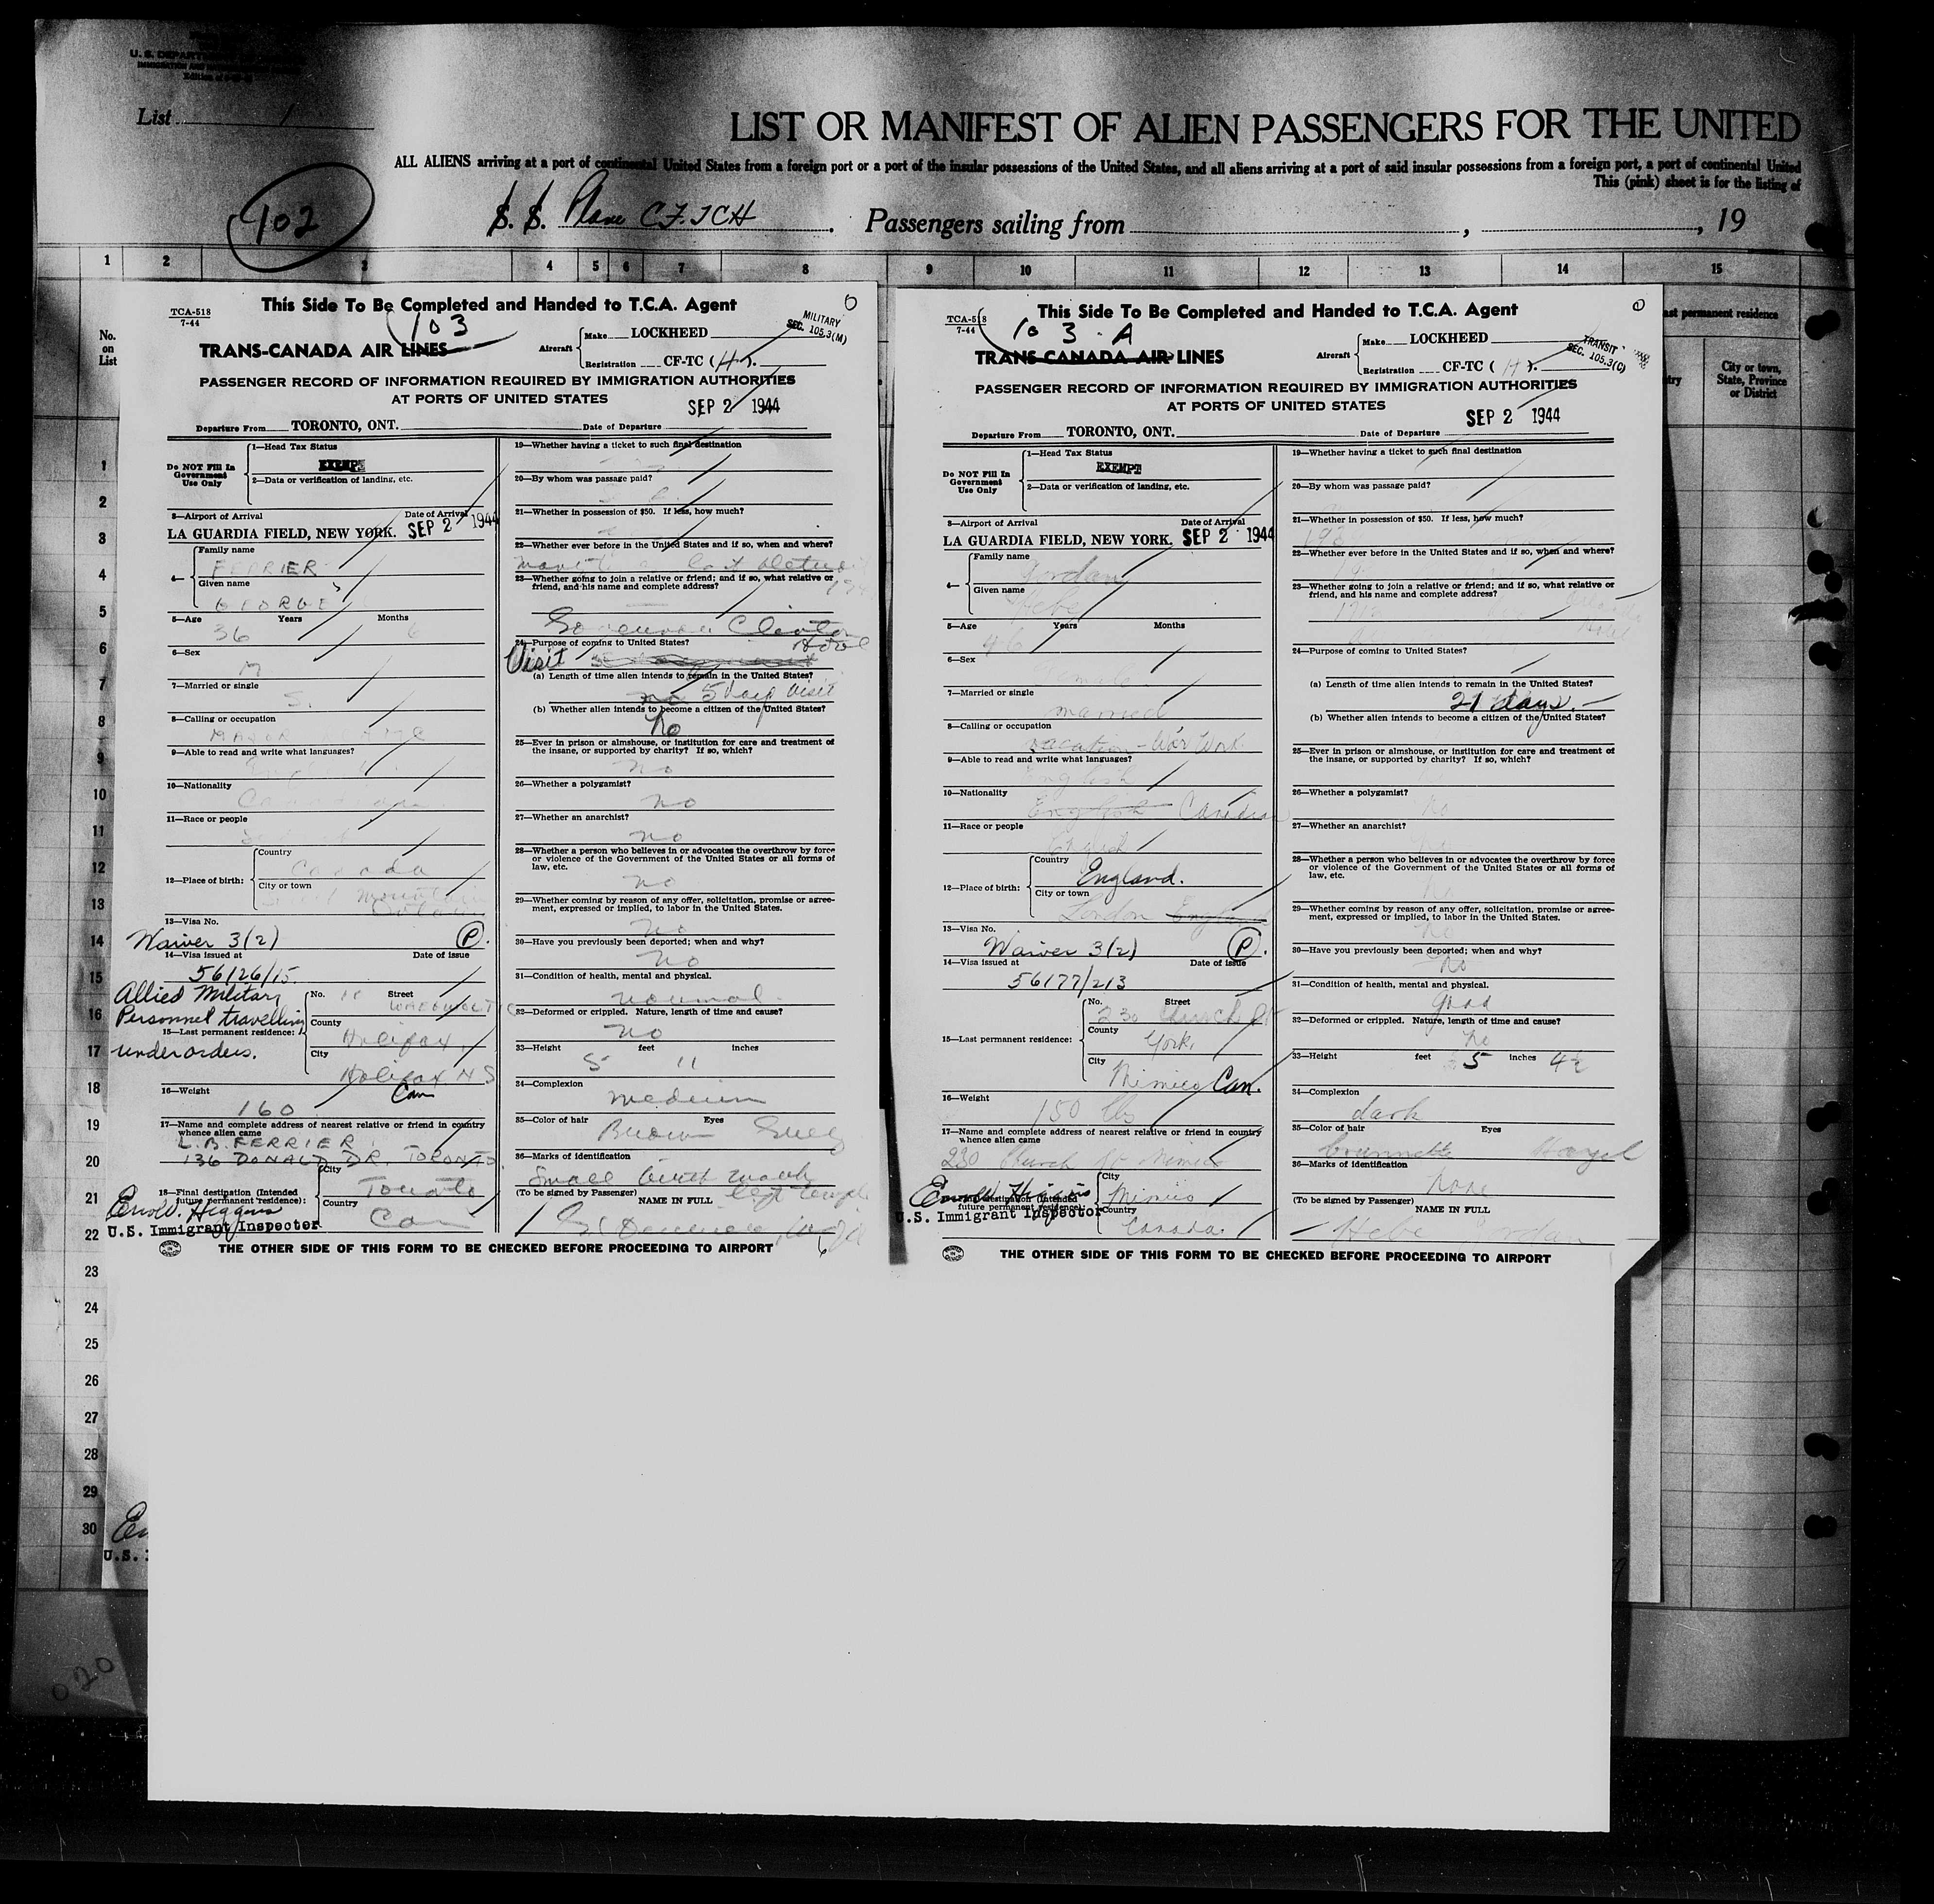 U. S. DEPART
Edition of
List 1
LIST OR MANIFEST OF ALIEN PASSENGERS FOR THE UNITED
ALL ALIENS arriving at a port of continental United States from a foreign port or a port of the insular possessions of the United States, and all aliens arriving at a port of said insular possessions from a foreign port, a port of continental United
This (pink) sheet is for the listing of
102
S. S. Plane CF.TCH. Passengers sailing from , , 19
1 2 3 4 5 6 7 8 9 10 11 12 13 14 15
No. on List
ast permanent residence
try
City or town, State, Province or District
1
2
3
4
5
6
7
8
9
10
11
12
13
14
15
16
17
18
19
20
21
22
23
24
25
26
27
28
29
30
U.S.
020
This Side To Be Completed and Handed to T.C.A. Agent
TCA-518
7-44
103
MILITARY
SEC. 105.3(M)
TRANS-CANADA AIR LINES
Aircraft Make LOCKHEED
Registration CF-TC (H).
PASSENGER RECORD OF INFORMATION REQUIRED BY IMMIGRATION AUTHORITIES
AT PORTS OF UNITED STATES
SEP 2 1944
Departure From TORONTO, ONT. Date of Departure
Do NOT Fill In Government Use Only
1—Head Tax Status
EXEMPT
2—Data or verification of landing, etc.
3—Airport of Arrival Date of Arrival
LA GUARDIA FIELD, NEW YORK. SEP 2 1944
4— Family name
FERRIER
Given name
GEORGE
5—Age Years Months
36 6
6—Sex
M
7—Married or single
S.
8—Calling or occupation
MAJOR
9—Able to read and write what languages?
10—Nationality
Canadian
11—Race or people
12—Place of birth:
Country
Canada
City or town
Mountain
13—Visa No.
Waiver 3(2) P.
14—Visa issued at Date of issue
56126/15.
Allied Military
Personnel travelling
under orders.
15—Last permanent residence:
No. Street
County
Halifax
City
Halifax N S
Can
16—Weight
160
17—Name and complete address of nearest relative or friend in country whence alien came
L. B. FERRIER
136 DONALD DR. TORONTO
18—Final destination (Intended future permanent residence):
City
Toronto
Country
Can
Higgins
U.S. Immigrant Inspector
19—Whether having a ticket to such final destination
20—By whom was passage paid?
21—Whether in possession of $50. If less, how much?
22—Whether ever before in the United States and if so, when and where?
23—Whether going to join a relative or friend; and if so, what relative or friend, and his name and complete address?
Clinton
Hotel
24—Purpose of coming to United States?
Visit
(a) Length of time alien intends to remain in the United States?
5 days visit
(b) Whether alien intends to become a citizen of the United States?
No
25—Ever in prison or almshouse, or institution for care and treatment of the insane, or supported by charity? If so, which?
No
26—Whether a polygamist?
No
27—Whether an anarchist?
No
28—Whether a person who believes in or advocates the overthrow by force or violence of the Government of the United States or all forms of law, etc.
No
29—Whether coming by reason of any offer, solicitation, promise or agreement, expressed or implied, to labor in the United States.
No
30—Have you previously been deported; when and why?
No
31—Condition of health, mental and physical.
normal
32—Deformed or crippled. Nature, length of time and cause?
No
33—Height feet inches
5 11
34—Complexion
Medium
35—Color of hair Eyes
Brown Grey
36—Marks of identification
Small birth mark
(To be signed by Passenger) NAME IN FULL
THE OTHER SIDE OF THIS FORM TO BE CHECKED BEFORE PROCEEDING TO AIRPORT
This Side To Be Completed and Handed to T.C.A. Agent
TCA-518
7-44
103-A
TRANSIT
SEC. 105.3(C)
TRANS-CANADA AIR LINES
Aircraft Make LOCKHEED
Registration CF-TC (H).
PASSENGER RECORD OF INFORMATION REQUIRED BY IMMIGRATION AUTHORITIES
AT PORTS OF UNITED STATES
SEP 2 1944
Departure From TORONTO, ONT. Date of Departure
Do NOT Fill In Government Use Only
1—Head Tax Status
EXEMPT
2—Data or verification of landing, etc.
3—Airport of Arrival Date of Arrival
LA GUARDIA FIELD, NEW YORK. SEP 2 1944
4— Family name
Jordan
Given name
Hebe
5—Age Years Months
46
6—Sex
Female
7—Married or single
married
8—Calling or occupation
vacation - War Work.
9—Able to read and write what languages?
English
10—Nationality
English Canadian
11—Race or people
English
12—Place of birth:
Country
England.
City or town
London England
13—Visa No.
Waiver 3(2) P.
14—Visa issued at Date of issue
56177/213
15—Last permanent residence:
No. Street
230 Church St
County
York
City
Mimico Can.
16—Weight
150 lbs
17—Name and complete address of nearest relative or friend in country whence alien came
230 Church St Mimico
18—Final destination (Intended future permanent residence):
City
Mimico
Country
Canada.
Higgins
U.S. Immigrant Inspector
19—Whether having a ticket to such final destination
20—By whom was passage paid?
21—Whether in possession of $50. If less, how much?
22—Whether ever before in the United States and if so, when and where?
23—Whether going to join a relative or friend; and if so, what relative or friend, and his name and complete address?
24—Purpose of coming to United States?
(a) Length of time alien intends to remain in the United States?
21 days.
(b) Whether alien intends to become a citizen of the United States?
25—Ever in prison or almshouse, or institution for care and treatment of the insane, or supported by charity? If so, which?
26—Whether a polygamist?
No
27—Whether an anarchist?
No
28—Whether a person who believes in or advocates the overthrow by force or violence of the Government of the United States or all forms of law, etc.
No
29—Whether coming by reason of any offer, solicitation, promise or agreement, expressed or implied, to labor in the United States.
No
30—Have you previously been deported; when and why?
No
31—Condition of health, mental and physical.
good
32—Deformed or crippled. Nature, length of time and cause?
No
33—Height feet 5 inches 4½
34—Complexion
dark
35—Color of hair Eyes
brunette Hazel
36—Marks of identification
none
(To be signed by Passenger) NAME IN FULL
Hebe Jordan
THE OTHER SIDE OF THIS FORM TO BE CHECKED BEFORE PROCEEDING TO AIRPORT